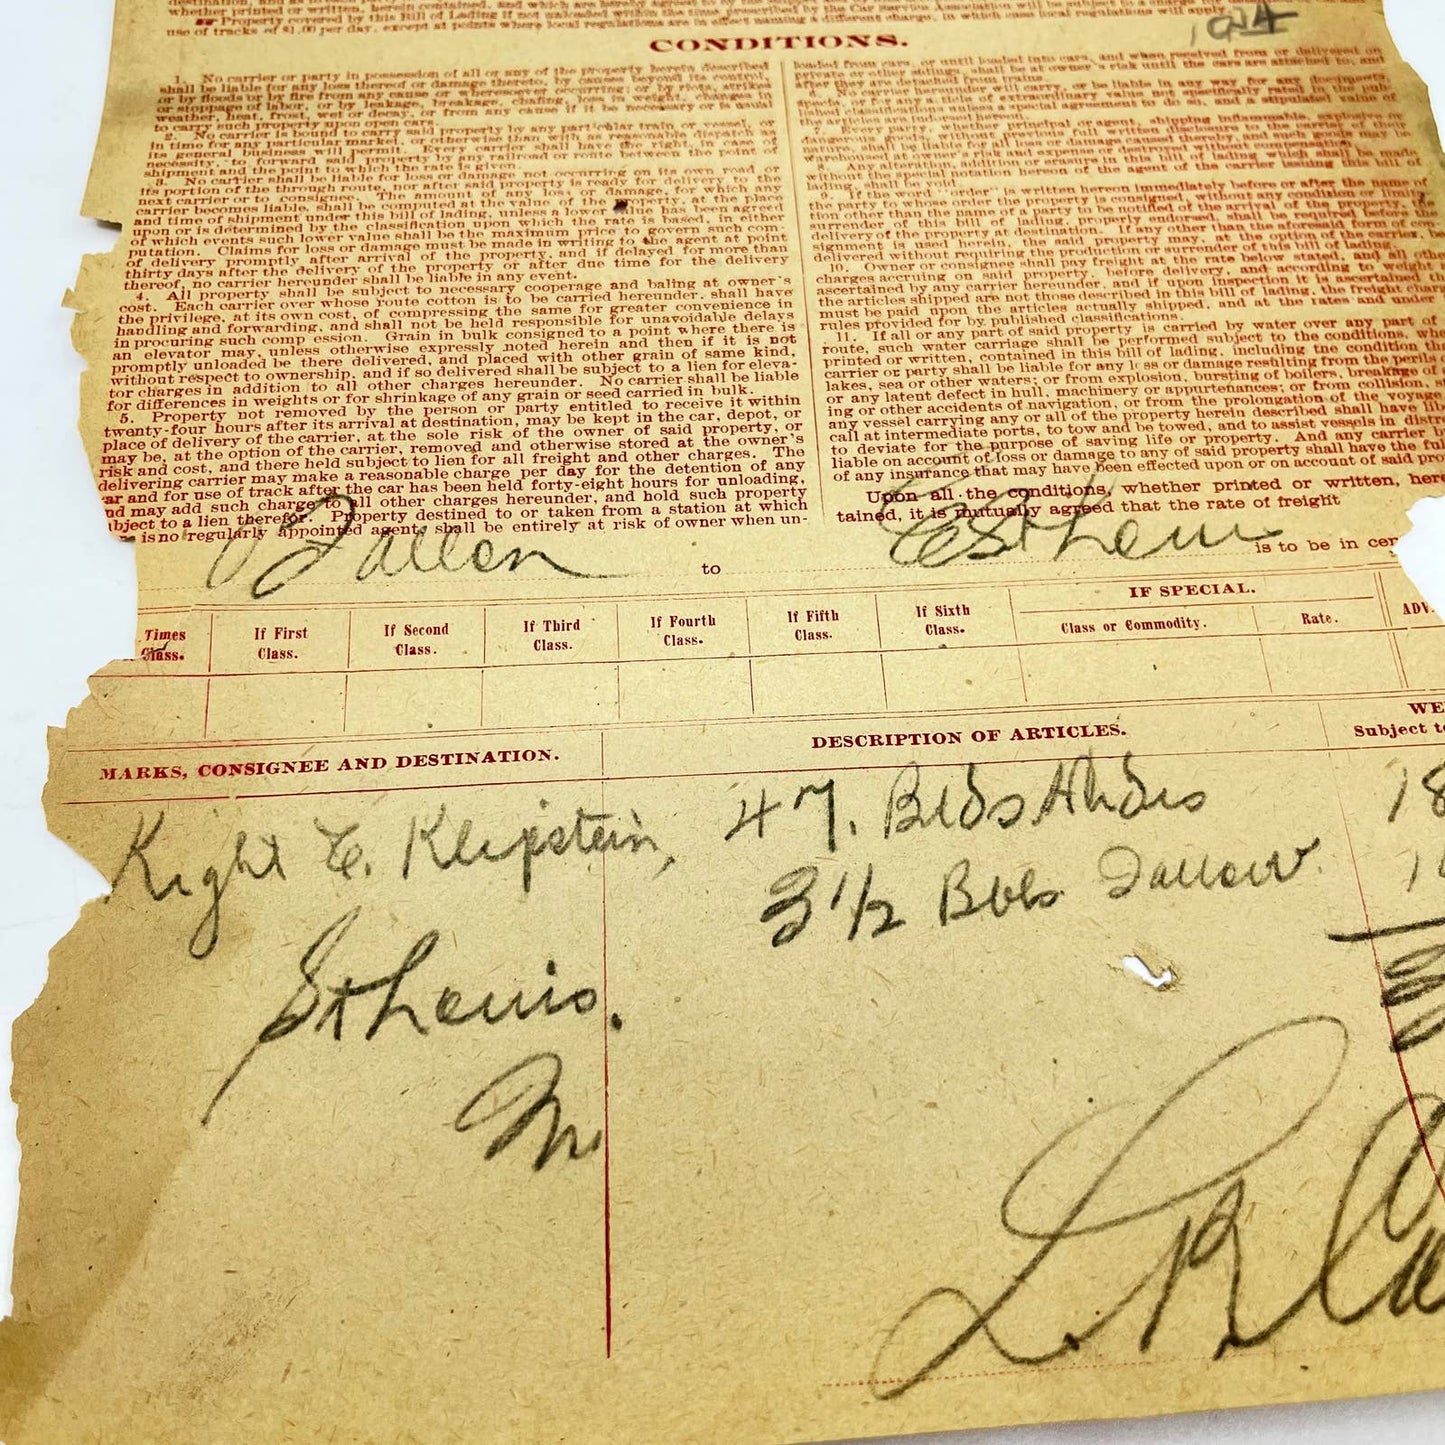 whether printed or written herein contained, and which are hereby agreed to by the
Property covered by this Bill of Lading if not unloaded within the time prescribed by the Car Service Association will be subject to a charge
use of tracks of $1.00 per day, except at points where local regulations are in effect naming a different charge, in which case local regulations will apply
CONDITIONS.
1. No carrier or party in possession of all or any of the property herein described
shall be liable for any loss thereof or damage thereto, by causes beyond its control,
or by floods or by fire from any cause or wheresoever occurring; or by riots, strikes
or stoppage of labor, or by leakage, breakage, chafing, loss in weight, changes in
weather, heat, frost, wet or decay, or from any cause if it be necessary or is usual
to carry such property upon open cars.
2. No carrier is bound to carry said property by any particular train or vessel, or
in time for any particular market, or otherwise than with as reasonable dispatch as
its general business will permit. Every carrier shall have the right, in case of
necessity, to forward said property by any railroad or route between the point of
shipment and the point to which the rate is given.
3. No carrier shall be liable for loss or damage not occurring on its own road or
its portion of the through route, nor after said property is ready for delivery to the
next carrier or to consignee. The amount of any loss or damage, for which any
carrier becomes liable, shall be computed at the value of the property, at the place
and time of shipment under this bill of lading, unless a lower value has been agreed
upon or is determined by the classification upon which the rate is based, in either
of which events such lower value shall be the maximum price to govern such com-
putation. Claims for loss or damage must be made in writing to the agent at point
of delivery promptly after arrival of the property, and if delayed for more than
thirty days after the delivery of the property or after due time for the delivery
thereof, no carrier hereunder shall be liable in any event.
4. All property shall be subject to necessary cooperage and baling at owner's
cost. Each carrier over whose route cotton is to be carried hereunder shall have
the privilege, at its own cost, of compressing the same for greater convenience in
handling and forwarding, and shall not be held responsible for unavoidable delays
in procuring such comp ession. Grain in bulk consigned to a point where there is
an elevator may, unless otherwise expressly noted herein and then if it is not
promptly unloaded be there delivered and placed with other grain of same kind,
without respect to ownership, and if so delivered shall be subject to a lien for eleva-
tor charges in addition to all other charges hereunder. No carrier shall be liable
for differences in weights or for shrinkage of any grain or seed carried in bulk.
5. Property not removed by the person or party entitled to receive it within
twenty-four hours after its arrival at destination, may be kept in the car, depot, or
place of delivery of the carrier, at the sole risk of the owner of said property, or
may be, at the option of the carrier, removed and otherwise stored at the owner's
risk and cost, and there held subject to lien for all freight and other charges. The
delivering carrier may make a reasonable charge per day for the detention of any
car and for use of track after the car has been held forty-eight hours for unloading,
nd may add such charge to all other charges hereunder, and hold such property
bject to a lien therefor. Property destined to or taken from a station at which
is no regularly appointed agent, shall be entirely at risk of owner when un-
loaded from cars, or until loaded into cars, and when received from or delivered on
private or other sidings, shall be at owner's risk until the cars are attached to, and
after they are detached from trains.
6. No carrier hereunder will carry, or be liable in any way for any documents,
specie, or for any article of extraordinary value not specifically rated in the pub-
lished classification unless a special agreement to do so, and a stipulated value of
the articles are indorsed hereon.
7. Every party, whether principal or agent, shipping inflammable, explosive or
dangerous goods, without previous full written disclosure to the carrier of their
nature, shall be liable for all loss or damage caused thereby, and such goods may be
warehoused at owner's risk and expense or destroyed without compensation.
8. Any alteration, addition or erasure in this bill of lading which shall be made
without the special notation hereon of the agent of the carrier issuing this bill of
lading, shall be void.
9. If the word "order" is written hereon immediately before or after the name of
the party to whose order the property is consigned, without any condition or limita-
tion other than the name of a party to be notified of the arrival of the property, the
surrender of this bill of lading, properly endorsed, shall be required before the
delivery of the property at destination. If any other than the aforesaid form of con-
signment is used herein, the said property may, at the option of the carrier, be
delivered without requiring the production or surrender of this bill of lading.
10. Owner or consignee shall pay freight at the rate below stated, and all othe
charges accruing on said property, before delivery, and according to weight
ascertained by any carrier hereunder, and if upon inspection it is ascertained th
the articles shipped are not those described in this bill of lading, the freight charg
must be paid upon the articles actually shipped, and at the rates and under
rules provided for by published classifications.
11. If all or any part of said property is carried by water over any part of
route, such water carriage shall be performed subject to the conditions, whe
printed or written, contained in this bill of lading, including the condition, th
carrier or party shall be liable for any l ss or damage resulting from the perils o
lakes, sea or other waters; or from explosion, bursting of boilers, breakage of
or any latent defect in hull, machinery or appurtenances; or from collision, s
ing or other accidents of navigation, or from the prolongation of the voyage
any vessel carrying any or all of the property herein described shall have lib
call at intermediate ports, to tow and be towed, and to assist vessels in distre
to deviate for the purpose of saving life or property. And any carrier b
liable on account of loss or damage to any of said property shall have the ful
of any insurance that may have been effected upon or on account of said pro
Upon all the conditions, whether printed or written, here
tained, it is mutually agreed that the rate of freight
to is to be in cen
Times Class.
If First Class.
If Second Class.
If Third Class.
If Fourth Class.
If Fifth Class.
If Sixth Class.
IF SPECIAL.
Class or Commodity.
Rate.
ADV.
MARKS, CONSIGNEE AND DESTINATION.
DESCRIPTION OF ARTICLES.
WE
Subject to
47. Bdls Hides 18
3 1/2 Bbls Tallow
St Louis.
Mo.
L. R.